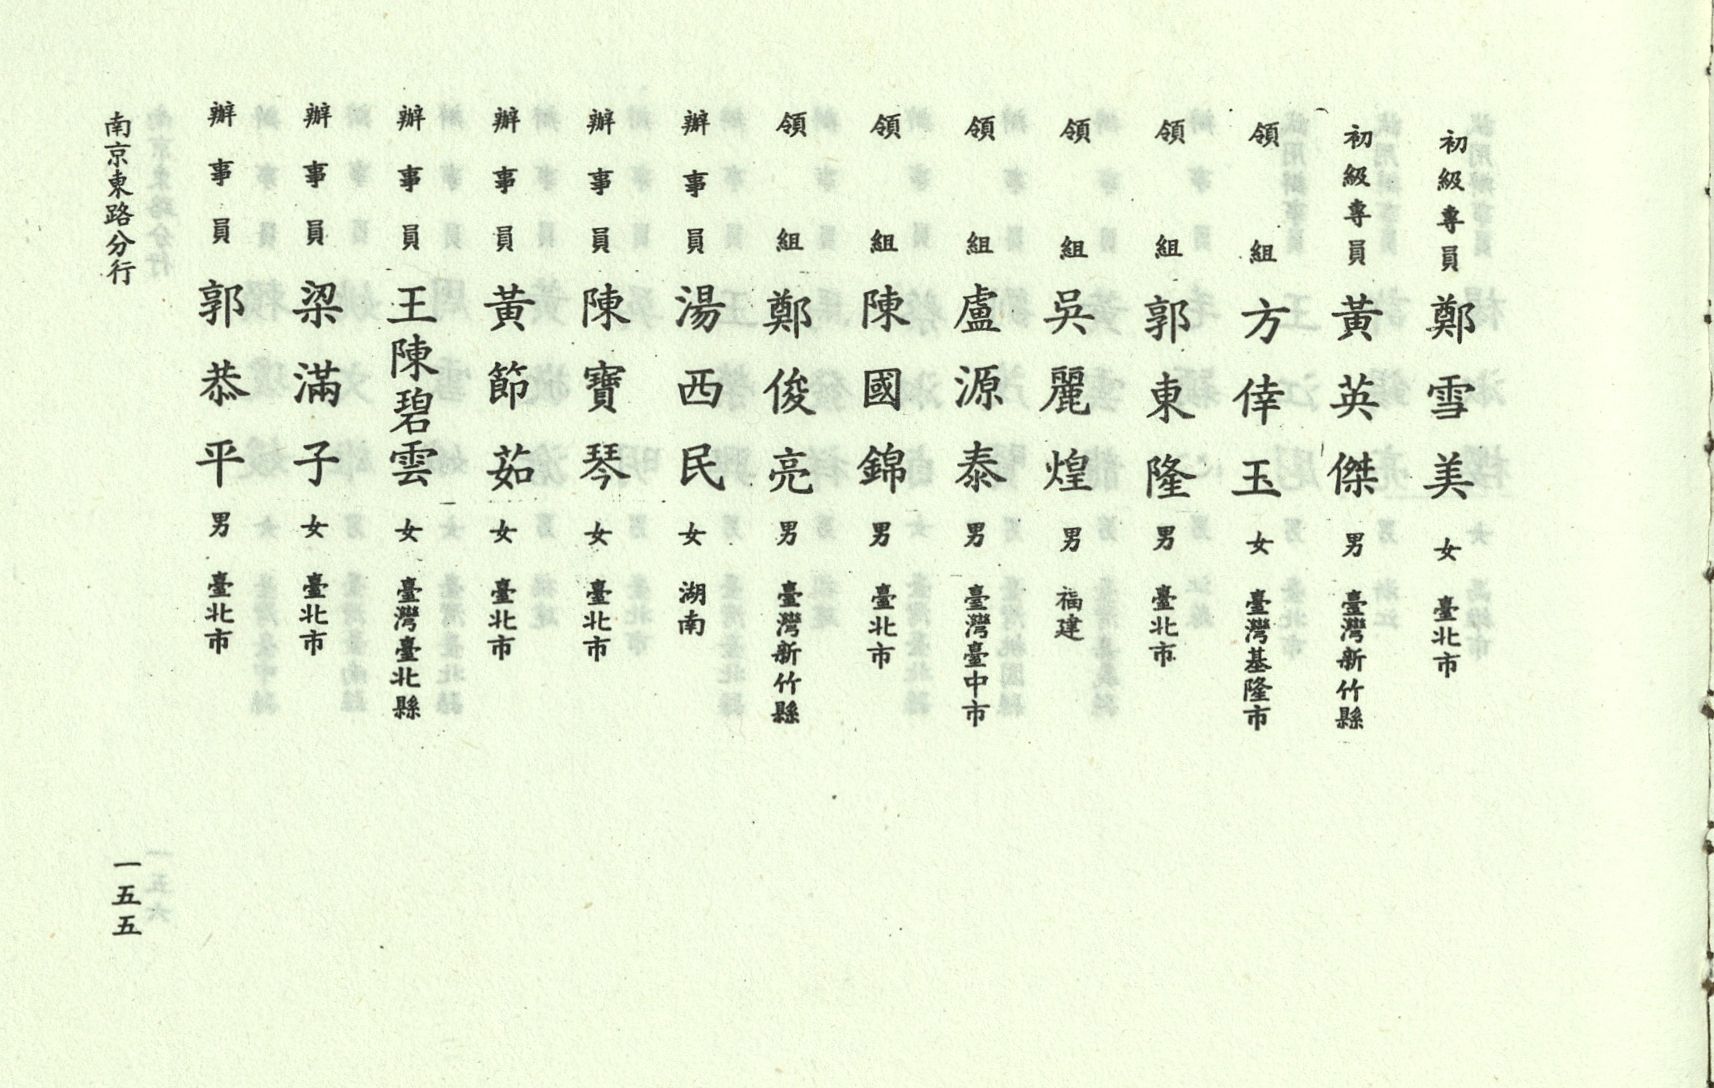 初級專員 鄭雪美 女 臺北市
初級專員 黃英傑 男 臺灣新竹縣
領組 方倖玉 女 臺灣基隆市
領組 郭東隆 男 臺北市
領組 吳麗煌 男 福建
領組 盧源泰 男 臺灣臺中市
領組 陳國錦 男 臺北市
領組 鄭俊亮 男 臺灣新竹縣
辦事員 湯西民 女 湖南
辦事員 陳寶琴 女 臺北市
辦事員 黃節茹 女 臺北市
辦事員 王陳碧雲 女 臺灣臺北縣
辦事員 梁滿子 女 臺北市
辦事員 郭恭平 男 臺北市
南京東路分行
一五五